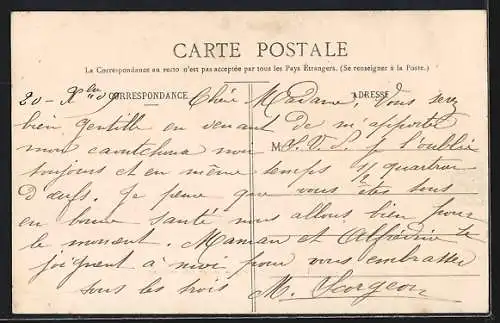 CARTE POSTALE
La Correspondance au recto n'est pas acceptée par tous les Pays Étrangers. (Se renseigner à la Poste.)
CORRESPONDANCE
ADRESSE
20 - Xbre 09 Chère Madame, Vous serez
bien gentille en venant de m'apporter
mon caoutchouc S. V. P. je l'oublie
M
toujours et en même temps 1/2 quartron
D'œufs. Je pense que vous êtes tous
en bonne santé nous allons bien pour
le moment. Maman et se
joignent à moi pour vous embrasser
tous les trois M.